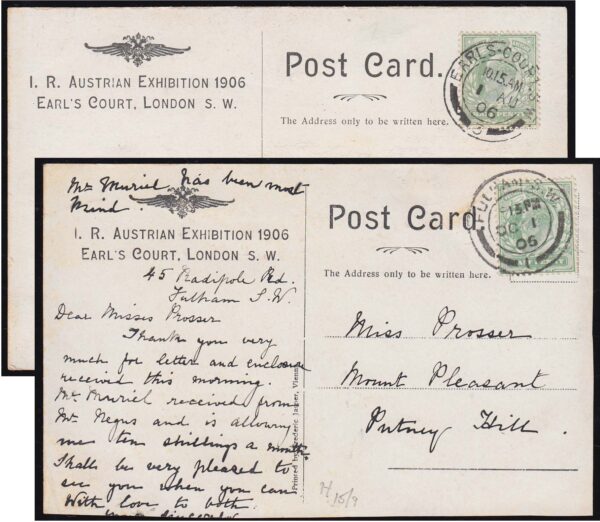 I. R. AUSTRIAN EXHIBITION 1906
EARL'S COURT, LONDON S. W.
Post Card.
The Address only to be written here.
EARLS-COURT
10.15.AM
1 AU
06
Mr Muriel has been most
kind.
I. R. AUSTRIAN EXHIBITION 1906
EARL'S COURT, LONDON S. W.
45 Radipole Rd.
Fulham S.W.
Dear Misses Prosser
Thank you very
much for letter and enclosure
received this morning.
Mr Muriel received from
Mr Negus and is allowing
me ten shillings a month.
Shall be very pleased to
see you when you can
With love to both
Printed by Frederic Jasper, Vienna
Post Card
The Address only to be written here.
FULHAM S.W.
OC 1
06
1
Miss Prosser
Mount Pleasant
Putney Hill.